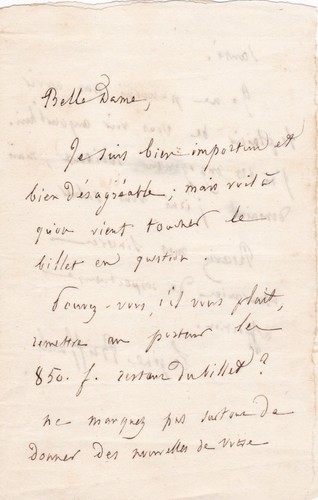 Belle Dame,
Je suis bien importun et
bien désagréable ; mais voilà
qu'on vient toucher le
billet en question.
Pouvez-vous, s'il vous plait,
remettre au porteur les
850. f. restant du billet ?
ne manquez pas surtout de
donner des nouvelles de votre